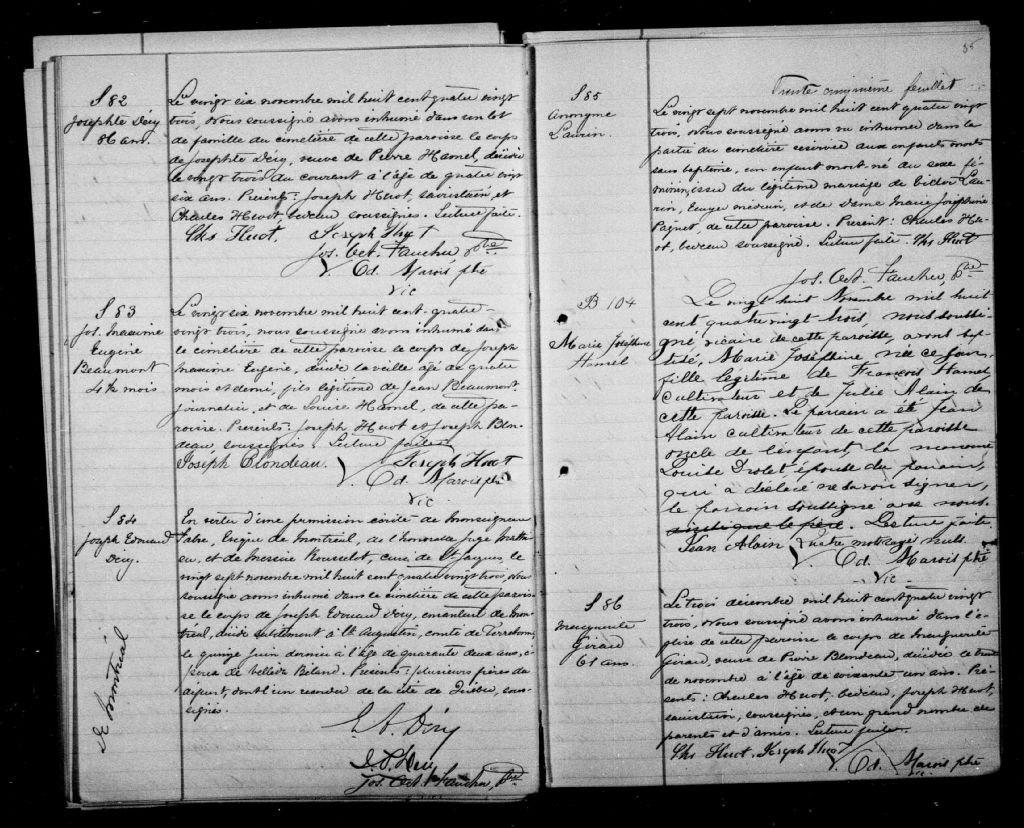 S 82
Josephte Déry
86 ans.
Le vingt six novembre mil huit cent quatre vingt
trois, Nous soussigné avons inhumé dans un lot
de famille du cimetière de cette paroisse le corps
de Josephte Déry, veuve de Pierre Hamel, décédée
le vingt trois du courant à l'âge de quatre vingt
six ans. Présents: Joseph Huot, sacristain, et
Charles Huot, bedeau soussignés. Lecture faite.
Chs Huot, Joseph Huot
Jos. Oct. Faucher, Ptre
V. Od. Marois ptre
Vic
S 83
Jos. Maxime
Eugène
Beaumont
4½ mois
Le vingt six novembre mil huit cent-quatre-
vingt trois, nous soussigné avons inhumé dans
le cimetière de cette paroisse le corps de Joseph
Maxime Eugène, décédé la veille âgé de quatre
mois et demi, fils légitime de Jean Beaumont
journalier, et de Louise Hamel, de cette pa-
roisse. Présents: Joseph Huot et Joseph Blon-
deau, soussignés. Lecture faite
Joseph Blondeau. Joseph Huot
V. Od. Marois ptre
Vic
S 84
Joseph Edmund
Déry.
de Montréal
En vertu d'une permission écrite de Monseigneur
Fabre, Evêque de Montréal, de l'honorable juge Mathi-
eu, et de messire Rousselot, curé de St Jacques le
vingt sept novembre mil huit cent quatre vingt trois, Nous
soussigné avons inhumé dans le cimetière de cette parois-
se le corps de Joseph Edmund Déry, de Mont-
réal, décédé subitement à St Augustin, comté de Terrebonne,
le quinze juin dernier à l'âge de quarante deux ans, é-
poux de Béland. Présents: plusieurs frères du
défunt, dont l'un de la cité de Québec, sous-
signés.
E. A. Déry
Déry
Jos. Oct. Faucher, Ptre
35
Trente cinquième feuillet
S 85
Anonyme
Laurin.
Le vingt sept novembre mil huit cent quatre vingt
trois, Nous soussigné avons vu inhumer dans la
partie du cimetière réservée aux enfants morts
sans baptême, un enfant mort né du sexe fé-
minin, issu du légitime mariage de Victor Lau-
rin, Ecuyer médecin, et de Dame Marie Josephine
Paquet, de cette paroisse. Présent: Charles Hu-
ot, bedeau soussigné. Lecture faite. Chs Huot
Jos. Oct. Faucher, Ptre
B 104
Marie Joséphine
Hamel
Le vingt huit Novembre mil huit
cent quatre vingt trois, nous soussi-
gné, vicaire de cette paroisse, avons bap-
tisé, Marie Joséphine née ce jour,
fille légitime de François Hamel
cultivateur et de Julie Alain, de
cette paroisse. Le parrain a été Jean
Alain cultivateur de cette paroisse
oncle de l'enfant, la marraine
Louise Drolet épouse du parrain,
qui a déclaré ne savoir signer,
le parrain soussigné avec nous.
ainsi que le père. Lecture faite
Jean Alain
V. Od. Marois ptre
Vic
S 86
Marguerite
Girard
61 ans.
Le trois décembre mil huit cent quatre vingt
trois, Nous soussigné avons inhumé dans l'é-
glise de cette paroisse le corps de Marguerite
Girard, veuve de Pierre Blondeau, décédée le trente
de novembre à l'âge de soixante un ans. Pré-
sents: Charles Huot, bedeau, Joseph Huot,
sacristain, soussignés, et un grand nombre de
parents et d'amis. Lecture faite.
Chs Huot. Joseph Huot
V. Od. Marois ptre
Vic.